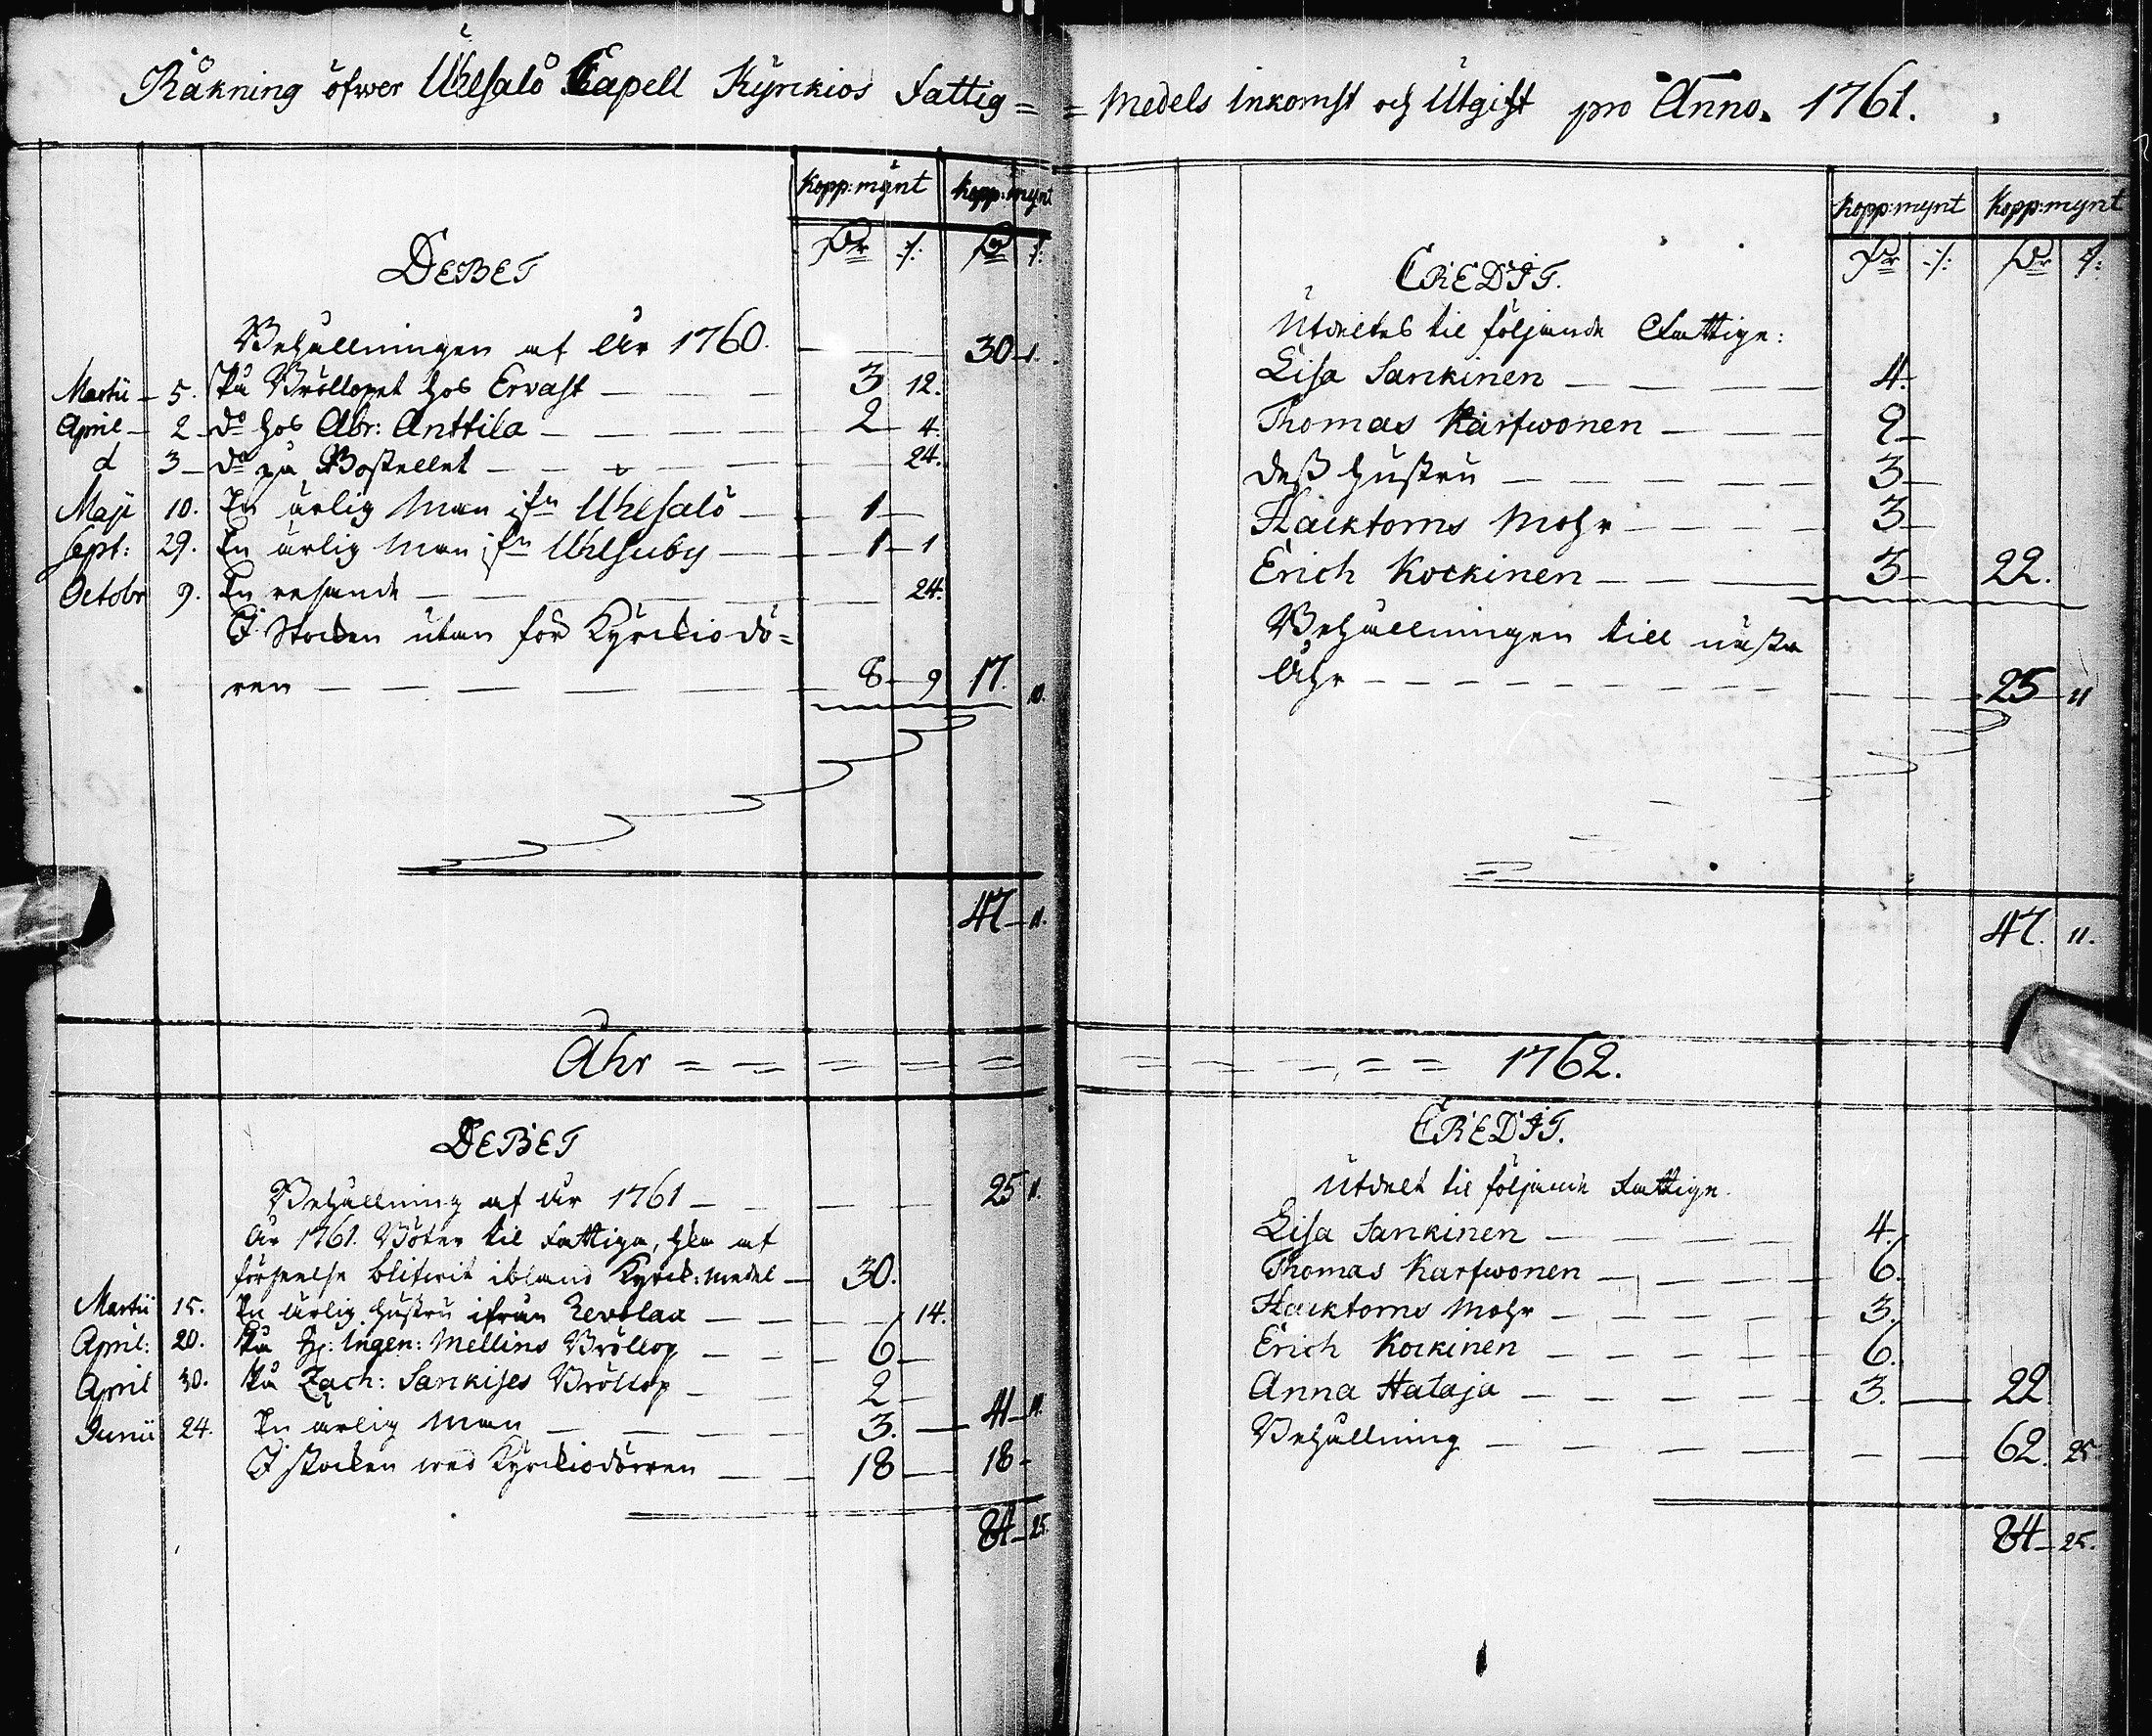 Räkning öfwer Uhlsalö Capell Kyrckios Fattig=
= Medels Inkomst och Utgift pro Anno. 1761.
Kopp:mÿnt Kopp:mÿnt
Dr :/: Dr :/:
DEBET
Behållningen af År 1760. 30 1.
Martii 5. På Bröllopet hos Ervast 3 12.
April 2 do hos Abr: Anttila 2 4.
d 3 do på Bostellet 24.
Maji 10. En ärlig Man ifn Uhlsalö 1
Sept: 29. En ärlig Man ifn Uhlsuby 1 1
Octobr 9. En resande 24.
I Stocken utan för Kyrckiodö=
ren 8 9 17. 10.
47 11.
Kopp:mynt Kopp:mynt
Dr :/: Dr :/:
CREDIT.
Utdeltes til följande Fattige:
Lisa Sankinen 4.
Thomas Karfwonen 9
deß hustru 3
Hacktorns Mohr 3
Erich Kockinen 3 22.
Behållningen till nästa
Åhr 25 11
47. 11.
Åhr = = = = = = = = = = 1762.
DEBET
Behållning af år 1761 25 11.
År 1761. Böter til Fattiga, som af
förseelse blifwit ibland Kyrck:medel 30.
Martii 15. En ärlig hustru ifrån Revolaa 14.
April: 20. På H: Ingen: Mellins Bröllop 6
April 30. På Zach: Sankises Bröllop 2
Junii 24. En ärlig Man 3. 41 11.
I stocken wed Kyrckiodörren 18 18
84 25
CREDIT.
Utdelt til följande Fattige.
Lisa Sankinen 4.
Thomas Karfwonen 6.
Hacktorns Mohr 3.
Erich Kockinen 6.
Anna Hataja 3. 22
Behållning 62. 25.
84 25.